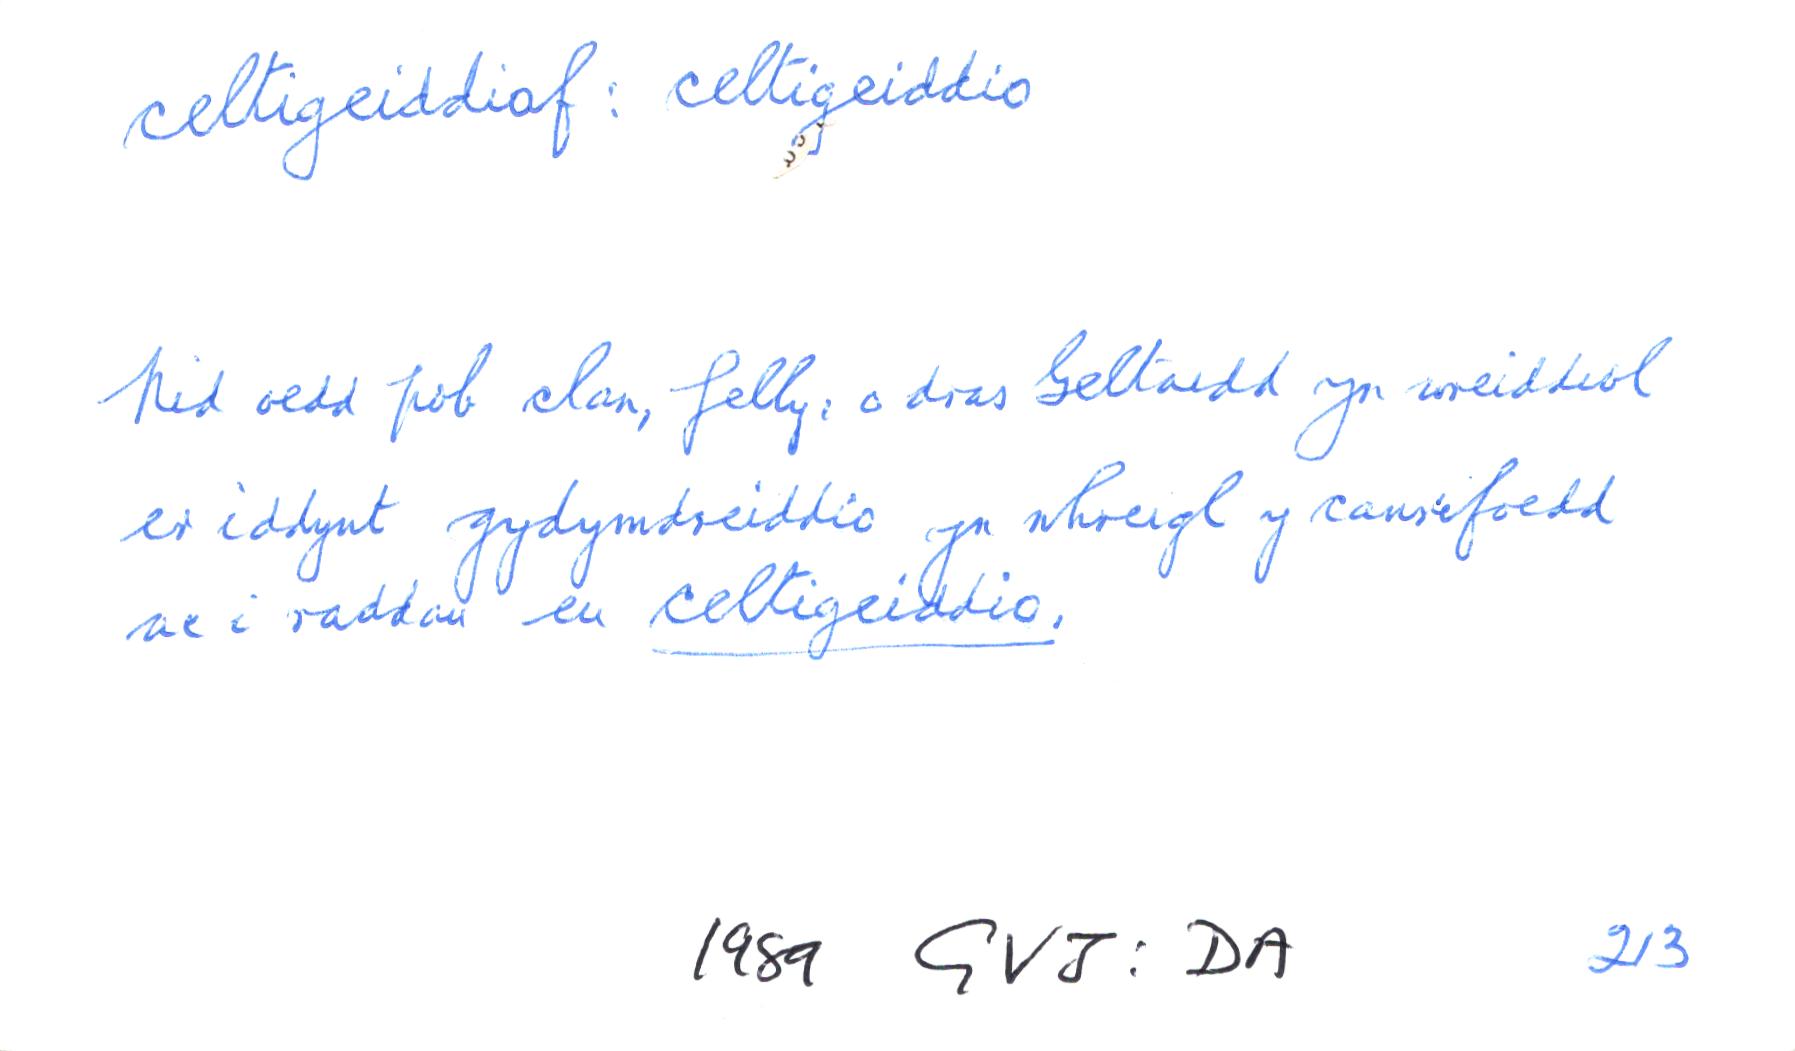 celtigeiddiaf: celtigeiddio
Nid oedd pob clan, felly, o dras Geltaidd yn wreiddiol
er iddynt gydymdreiddio yn nhreigl y canrifoedd
ac i raddau eu celtigeiddio.
1989 GVJ: DA 213